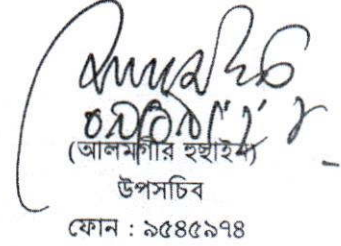 (আলমগীর হুছাইন)
উপসচিব
ফোন : ৯৫৪৫৯৭৪